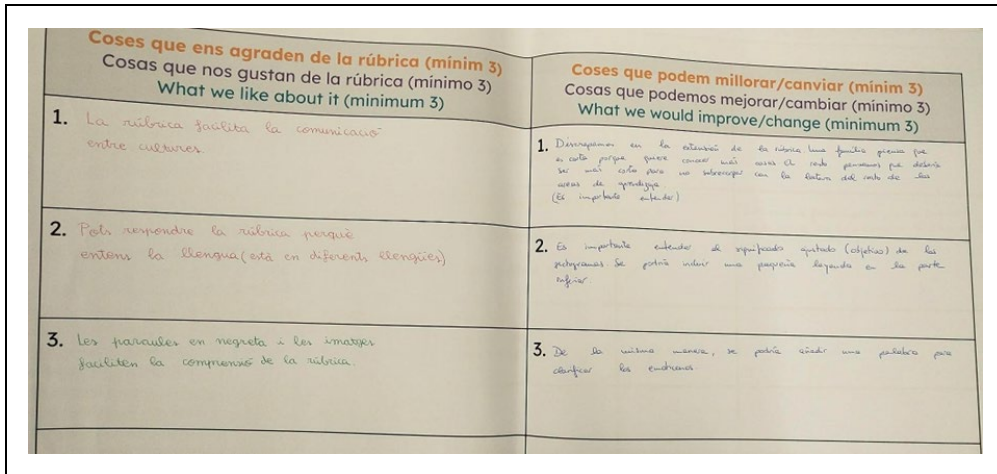 Coses que ens agraden de la rúbrica (mínim 3)
Cosas que nos gustan de la rúbrica (mínimo 3)
What we like about it (minimum 3)
1. La rúbrica facilita la comunicació
entre cultures.
2. Pots respondre la rúbrica perquè
entens la llengua (està en diferents llengües)
3. Les paraules en negreta i les imatges
faciliten la comprensió de la rúbrica.
Coses que podem millorar/canviar (mínim 3)
Cosas que podemos mejorar/cambiar (mínimo 3)
What we would improve/change (minimum 3)
1. Discrepamos en la extensión de la rúbrica. Una familia piensa que
es corta porque quiere conocer más cosas. El resto pensamos que debería
ser más corta para no sobrecargar con la lectura del resto de las
áreas de aprendizaje
(Es importante entender)
2. Es importante entender el significado ajustado (objetivo) de los
pictogramas. Se podría incluir una pequeña leyenda en la parte
inferior
3. De la misma manera, se podría añadir una palabra para
clarificar las emociones.